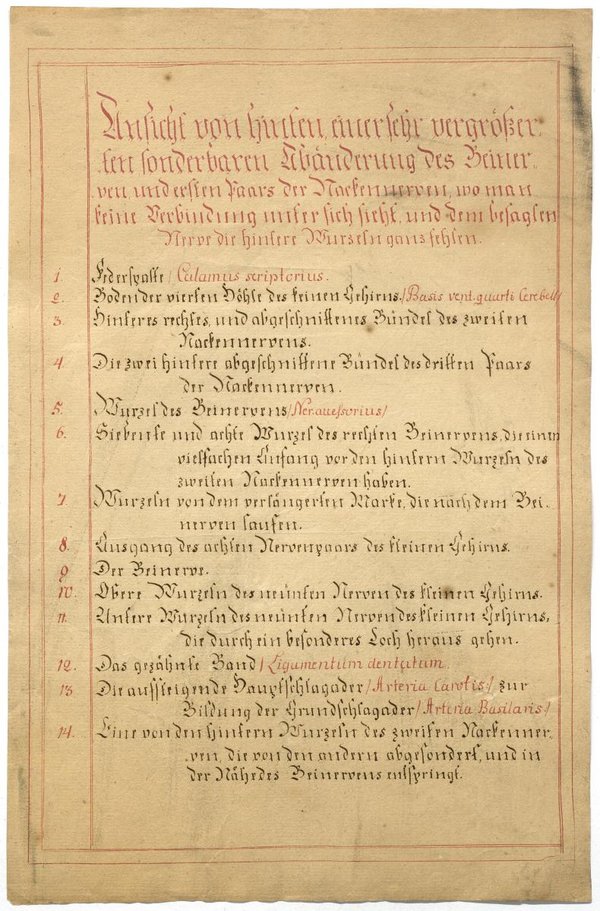 Ansicht von hinten, einer sehr vergrößer-
ten sonderbaren Abänderung des Beiner-
ven und ersten Paars der Nackennerven, wo man
keine Verbindung unter sich sieht, und dem besagten
Nerve die hintere Wurzeln ganz fehlen.
1. Federspalte /Calamus scriptorius.
2. Boden der vierten Höhle des keinen Gehirns. /Basis vent. quarti Cerebell/
3. Hinteres rechtes, und abgeschnittenes Bündel des zweiten
Nackennervens.
4. Die zwei hintere abgeschnittene Bündel des dritten Paars
der Nackennerven.
5. Wurzel des Beinervens /Ner. auessorius/
6. Siebente und achte Wurzel des rechten Beinervens, die einen
vielfachen Anfang vor den hintern Wurzeln des
zweiten Nackennerven haben.
7. Wurzeln von dem verlängerten Marke, die nach dem Bei-
nerven laufen.
8. Ausgang des achten Nervenpaars des kleinen Gehirns.
9. Der Beinerve.
10. Obere Wurzeln des neünten Nerven des kleinen Gehirns.
11. Untere Wurzeln des neünten Nerven des kleinen Gehirns,
die durch ein besonderes Loch heraus gehen.
12. Das gezähnte Band /Ligamentum dentatum.
13. Die aufsteigende Hauptschlagader /Arteria Carotis/ zur
Bildung der Grundschlagader /Arteria Basilaris/
14. Eine von den hintern Wurzeln des zweiten Nackenner-
ven, die von den andern abgesondert, und in
der Nähe des Beinervens entspringt.